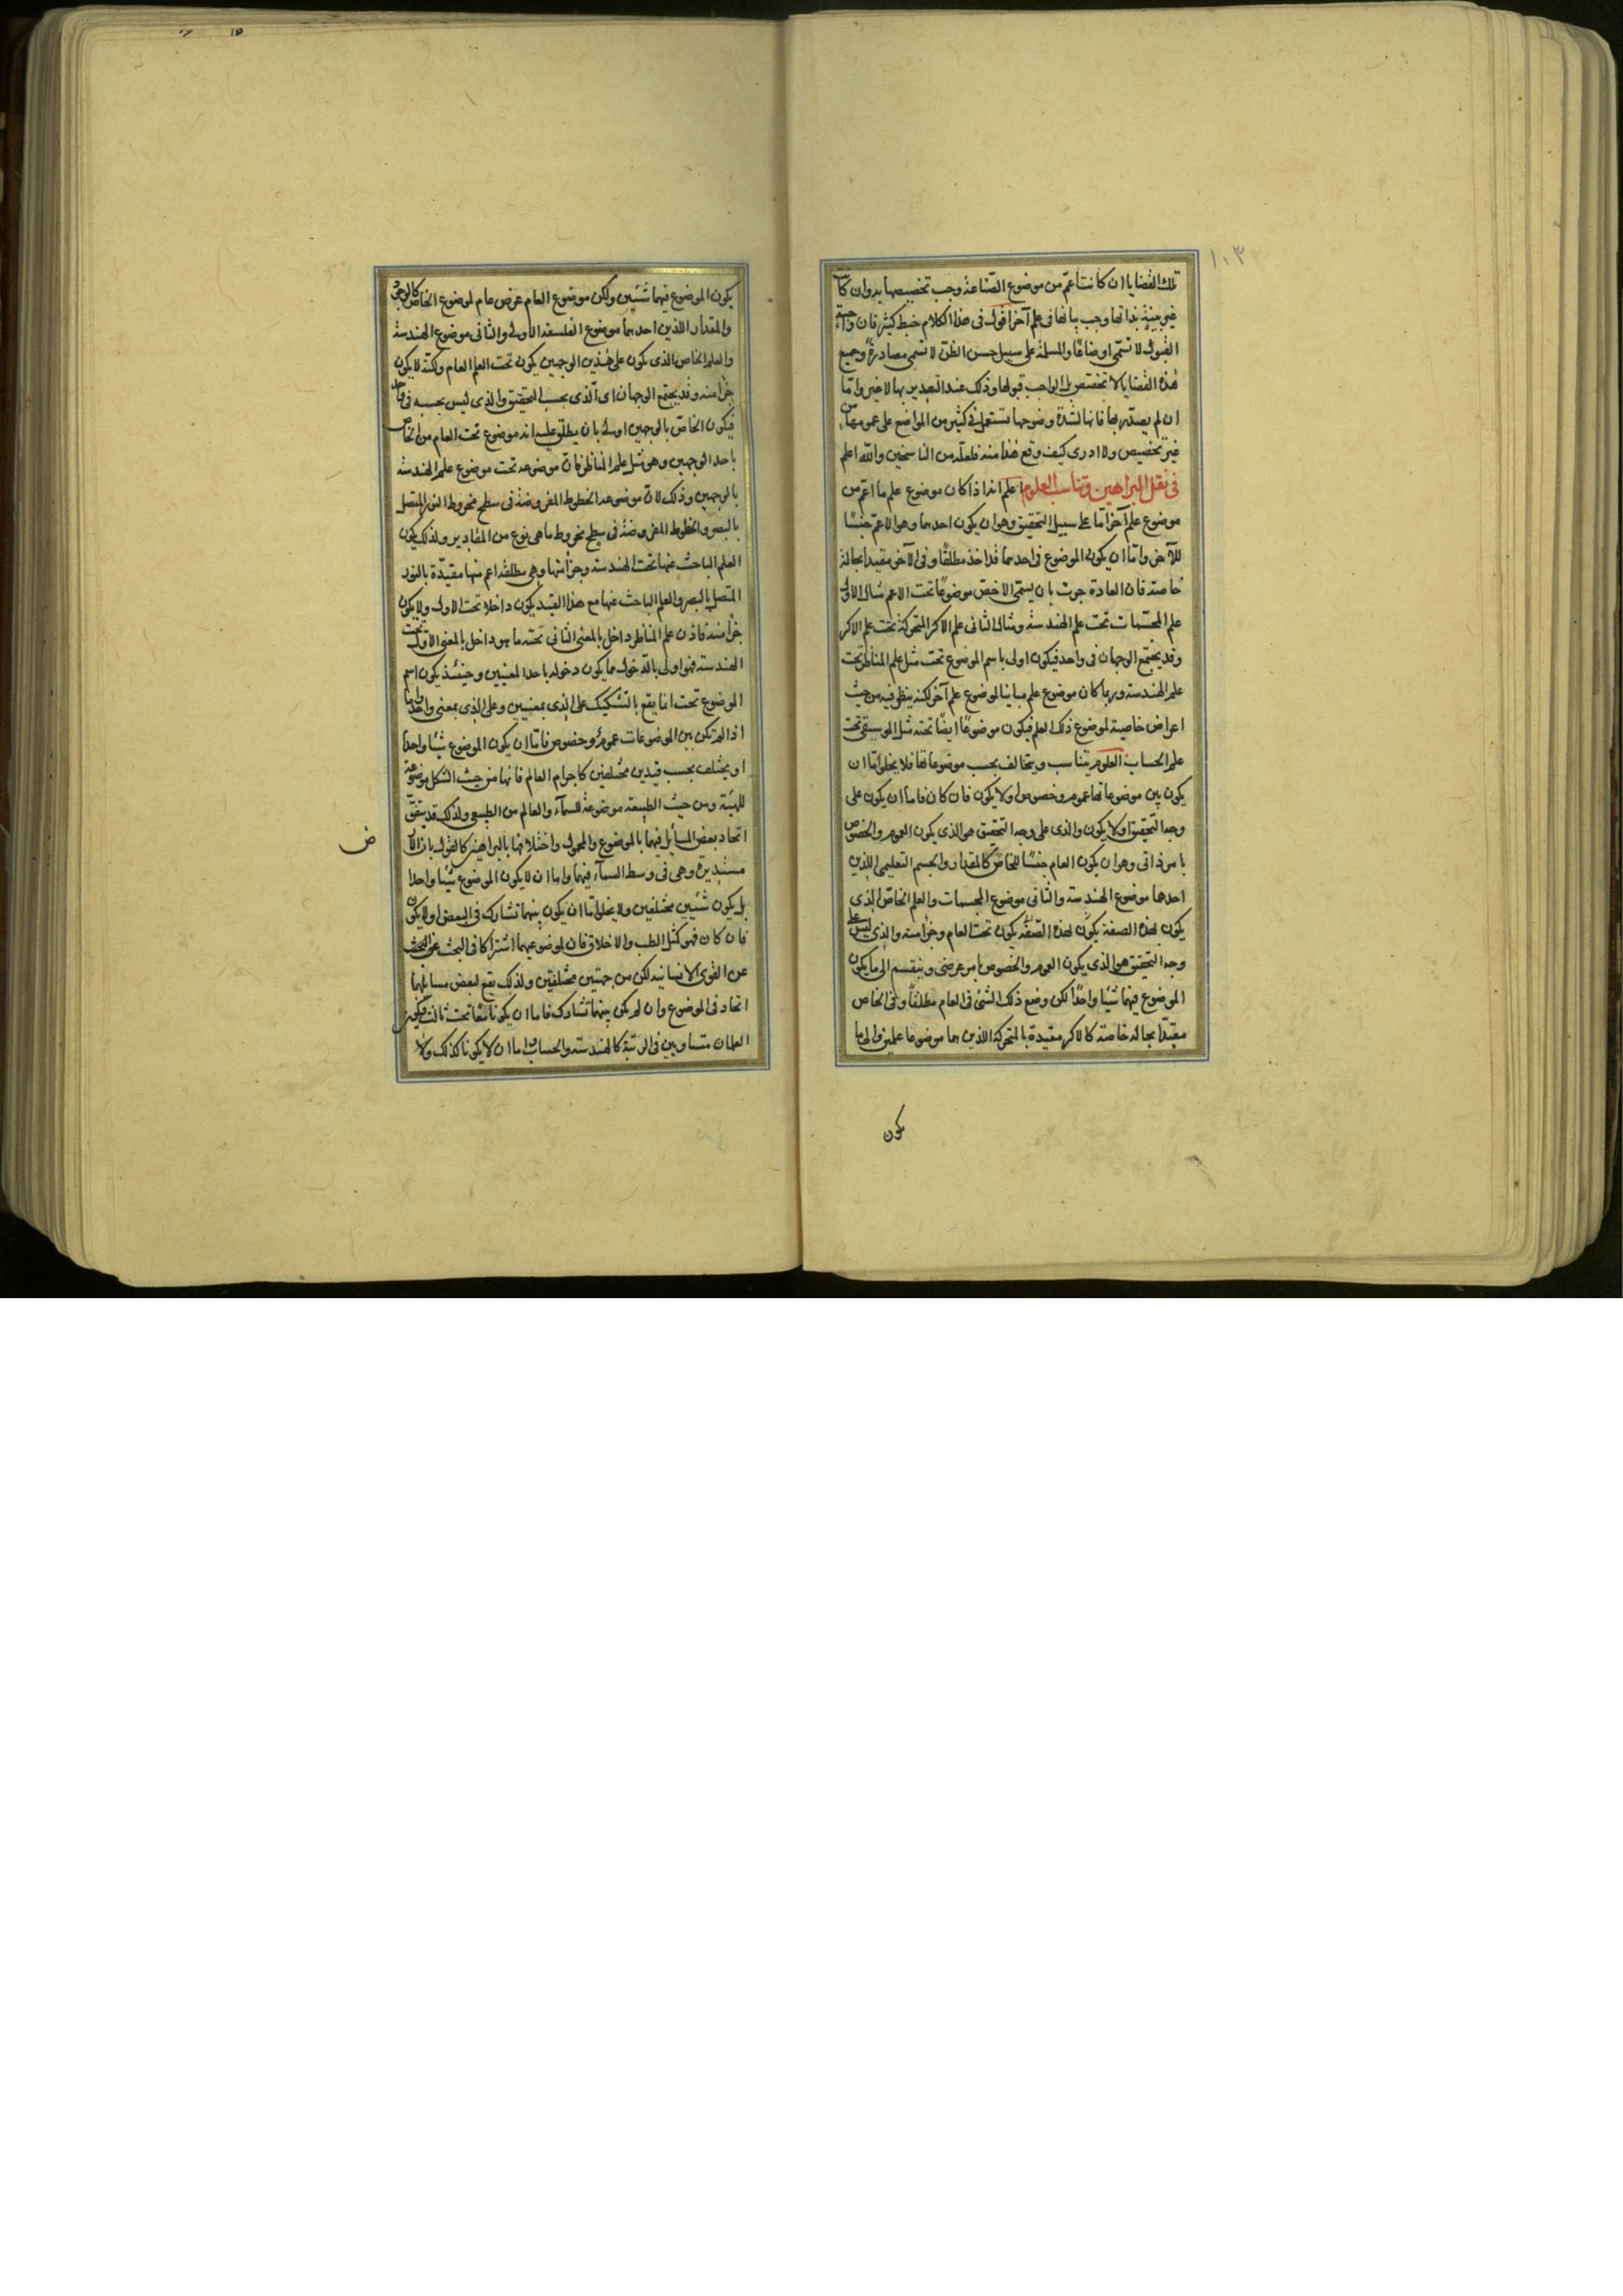 تلك القضايا ان كانت اعمّ من موضوع الصّناعة وجب تخصيصها به وان كانت
غير بيّنة بذاتها وجب بيانها فى علم آخر اقول فى هذا الكلام خبط كثير فان واجبة
القبول لا تسمّى اوضاعًا والمسلمة على سبيل حسن الظنّ لا تسمى مصادرةً وجميع
هذه القضايا لا تختص بل الواجب قبولها وذلك عند التصدير بها لا غير وامّا
ان لم يصدّر بها فانها لشدة وضوحها تستعمل فى كثير من المواضع على عمومها من
غير تخصيص ولا ادرى كيف وقع هذا منه فلعلّه من الناسخين والله اعلم
فى نقل البراهين وتناسب العلوم اعلم انه اذا كان موضوع علم ما اعمّ من
موضوع علم آخر امّا على سبيل التحقيق وهو ان يكون احدهما وهو الاعمّ جنسًا
للآخر وامّا ان يكون الموضوع فى احدهما قد اخذ مطلقًا وفى الآخر مقيدا بحالة
خاصة فان العادة جرت بان يسمّى الاخصّ موضوعًا تحت الاعم مثال الاول
علم المجسّمات تحت علم الهندسة ومثال الثانى علم الاكر المتحركة تحت علم الاكر
وقد يجتمع الوجهان فى واحد فيكون اولى باسم الموضوع تحت مثل علم المناظر تحت
علم الهندسة وربما كان موضوع علم مباينا لموضوع علم آخر لكنه ينظر فيه من حيث
اعراض خاصية لموضوع ذلك العلم فيكون موضوعًا ايضًا تحته مثل الموسيقى تحت
علم الحساب العلوم يتناسب ويتخالف بحسب موضوعاتها فلا يخلو امّا ان
يكون بين موضوعاتها عموم وخصوص او لا يكون فان كان فاما ان يكون على
وجه التحقيق او لا يكون والذى على وجه التحقيق هو الذى يكون العموم والخصوص
بامر ذاتى وهو ان يكون العام جنسًا للخاصّ كالمقدار والجسم التعليمى اللذين
احدهما موضوع الهندسة والثانى موضوع المجسمات والعلم الخاصّ الذى
يكون لهذه الصفة يكون لهذه الصّفة يكون تحت العام وجزأ منه والذى ليس على
وجه التحقيق هو الذى يكون العموم والخصوص بامر عرضى وينقسم الى ما يكون
الموضوع فيهما شيئا واحدًا لكن وضع ذلك الشئ فى العام مطلقًا وفى الخاص
مقيدًا بحالة خاصة كالاكر مقيدة بالمتحركة اللذين هما موضوعا علمين والى ما
يكون
يكون الموضوع فيهما شيئين ولكن موضوع العام عرض عام لموضوع الخاص كالوجود
والمقدار اللذين احدهما موضوع الفلسفة الاولى والثانى موضوع الهندسة
والعلم الخاص الذى يكون على هذين الوجهين يكون تحت العلم العام ولكنّه لا يكون
جزأ منه وقد يجتمع الوجهان اى الّذى بحسب التحقيق والذى ليس بحسبه فى واحد
فيكون الخاصّ بالوجهين اولى بان يطلق عليه انه موضوع تحت العام من الخاص
باحد الوجهين وهو مثل علم المناظر فانّ موضوعه تحت موضوع علم الهندسة
بالوجهين وذلك لانّ موضوعه الخطوط المفروضة فى سطح مخروط النور المتصل
بالبصر والخطوط المفروضة فى سطح مخروط ما هى نوع من المقادير ولذلك يكون
العلم الباحث عنها تحت الهندسة وجزأ منها وهى مطلقه اعم منها مقيدّة بالنور
المتصل بالبصر والعلم الباحث عنها مع هذا القيد يكون داخلا تحت الاول ولا يكون
جزأ منه فاذن علم المناظر داخل بالمعنى الثانى تحته ما هو داخل بالمعنى الاول تحت
الهندسة فهو اولى بالدّخول مما يكون دخوله باحد المعنيين وحينئذ يكون اسم
الموضوع تحت انما يقع بالتشكيك على الذى بمعنيين وعلى الذى بمعنى واحد واما
اذا لم تكن بين الموضوعات عموم وخصوص فامّا ان يكون الموضوع شيئا واحدا
او يختلف بحسب قيدين مختلفين كاجرام العالم فانها من حيث الشكل موضوعة
للهيئة ومن حيث الطبيعة موضوعة للسماء والعالم من الطبيعى ولذلك قد يتفق
اتحاد بعض المسائل فيهما بالموضوع والمحمول واختلافها بالبراهين كالقول بان الارض
مستديرة وهى فى وسط السمآء فيهما واما ان لا يكون الموضوع شيئا واحدا
بل يكون شيئين مختلفين ولا يخلو امّا ان يكون بينهما تشارك فى البعض او لا يكون
فان كان فهو كمثل الطب والاخلاق فان لموضوعيهما اشتراكا فى البحث
عن القوى الانسانية لكن من جهتين مختلفتين ولذلك يقع لبعض مسائلهما
اتحاد فى الموضوع وان لم يكن بينهما تشارك فاما ان يكونا معًا تحت ثالث فيكون
العلمان متساويين فى الرتبة كالهندسة والحساب واما ان لا يكونا كذلك ولا